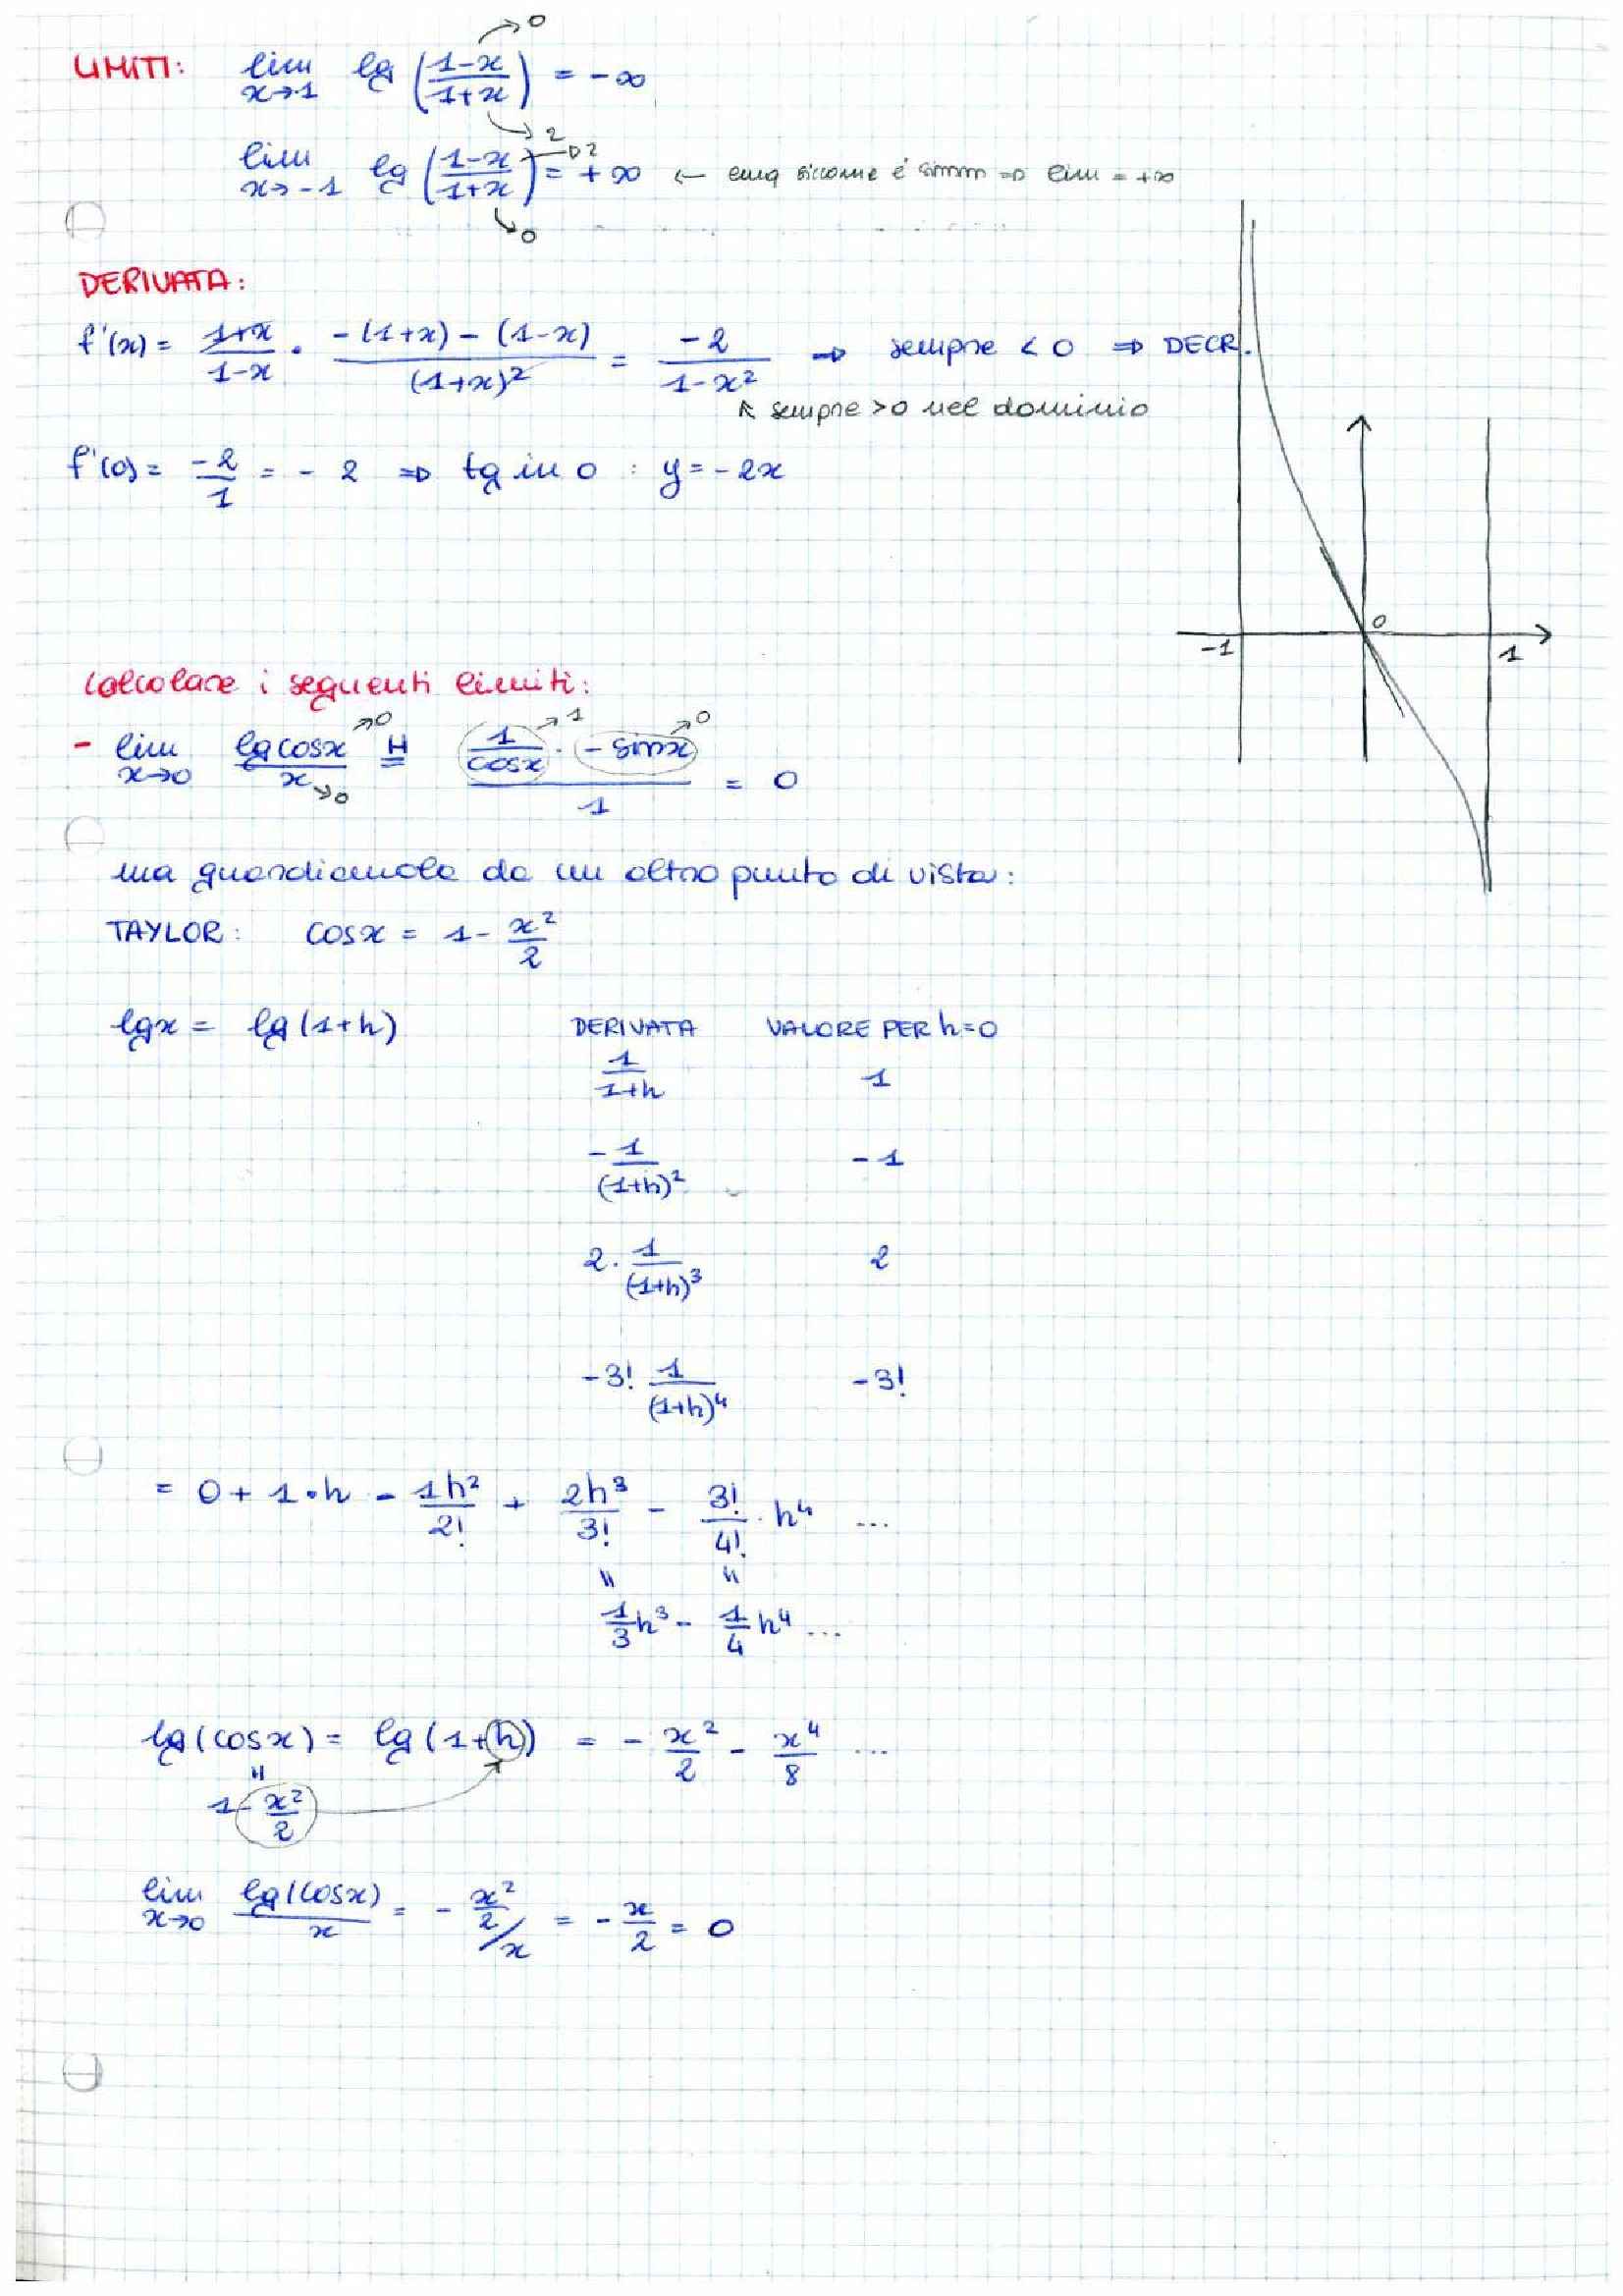 LIMITI: lim x→1 lg ((1-x)/(1+x)) = -∞ →0 →2
lim x→-1 lg ((1-x)/(1+x)) = +∞ →2 →0 ← siccome é simm ⇒ lim = +∞
DERIVATA:
f'(x) = (1+x)/(1-x) · (-(1+x) - (1-x))/(1+x)² = -2/(1-x²) ⇒ sempre < 0 ⇒ DECR.
↖ sempre >0 nel dominio
f'(0) = -2/1 = - 2 ⇒ tg in 0 : y = -2x
-1 0 1
Calcolare i seguenti limiti:
- lim x→0 lg cosx / x =ᴴ (1/cosx · -sinx)/1 = 0 →0 →0 →1 →0
ma guardiamolo da un altro punto di vista:
TAYLOR: cosx = 1 - x²/2
lgx = lg(1+h) DERIVATA VALORE PER h=0
1/(1+h) 1
-1/(1+h)² -1
2 · 1/(1+h)³ 2
-3! 1/(1+h)⁴ -3!
= 0 + 1·h - 1h²/2! + 2h³/3! - 3!/4! · h⁴ ...
" "
1/3 h³ - 1/4 h⁴ ...
lg(cosx) = lg(1+h) = - x²/2 - x⁴/8 ...
"
1 - x²/2
lim x→0 lg(cosx)/x = - x²/2 / x = - x/2 = 0